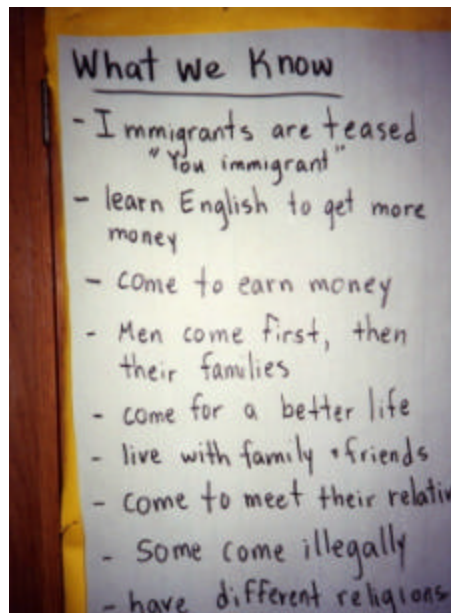 What we Know
- Immigrants are teased
"You immigrant"
- learn English to get more
money
- come to earn money
- Men come first, then
their families
- come for a better life
- live with family + friends
- come to meet their relativ
- Some come illegally
- have different religions